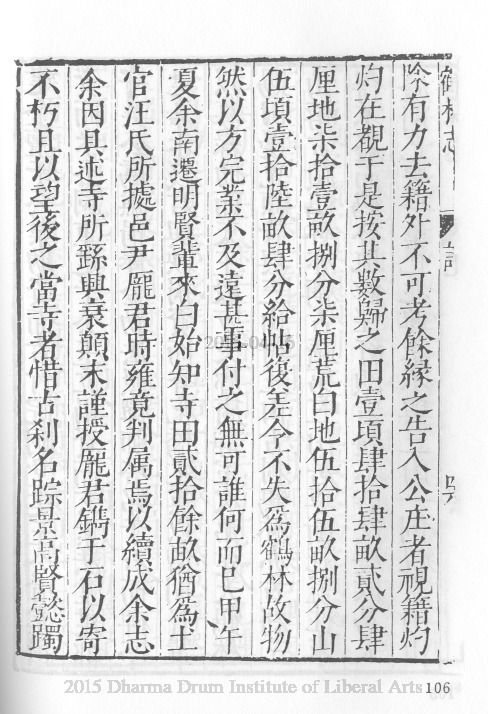 除有力去籍外不可考餘緣之告入公庄者視籍灼
灼在覩于是按其數歸之田壹頃肆拾肆畝貳分肆
厘地柒拾壹畝捌分柒厘荒白地伍拾伍畝捌分山
伍頃壹拾陸畝肆分給帖後差今不失為鶴林故物
然以方完業不及遠甚事付之無可誰何而已甲午
夏余南遷明賢輩來白始知寺田貳拾餘畝猶為土
官汪氏所據邑尹龎君時雍竟判属焉以續成余志
余因具述寺所繇興衰顛末謹授龎君鐫于石以寄
不朽且以望後之當寺者惜古刹名踪景高賢懿躅
2015 Dharma Drum Institute of Liberal Arts
106